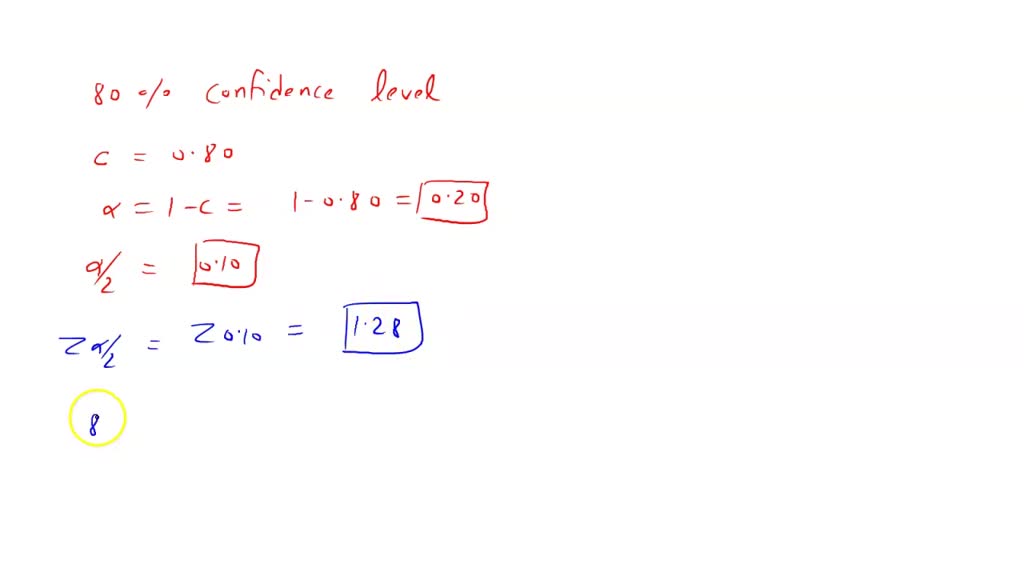 80 % confidence level
c = 0.80
α = 1-c = 1-0.80 = 0.20
α/2 = 0.10
Zα/2 = Z0.10 = 1.28
8